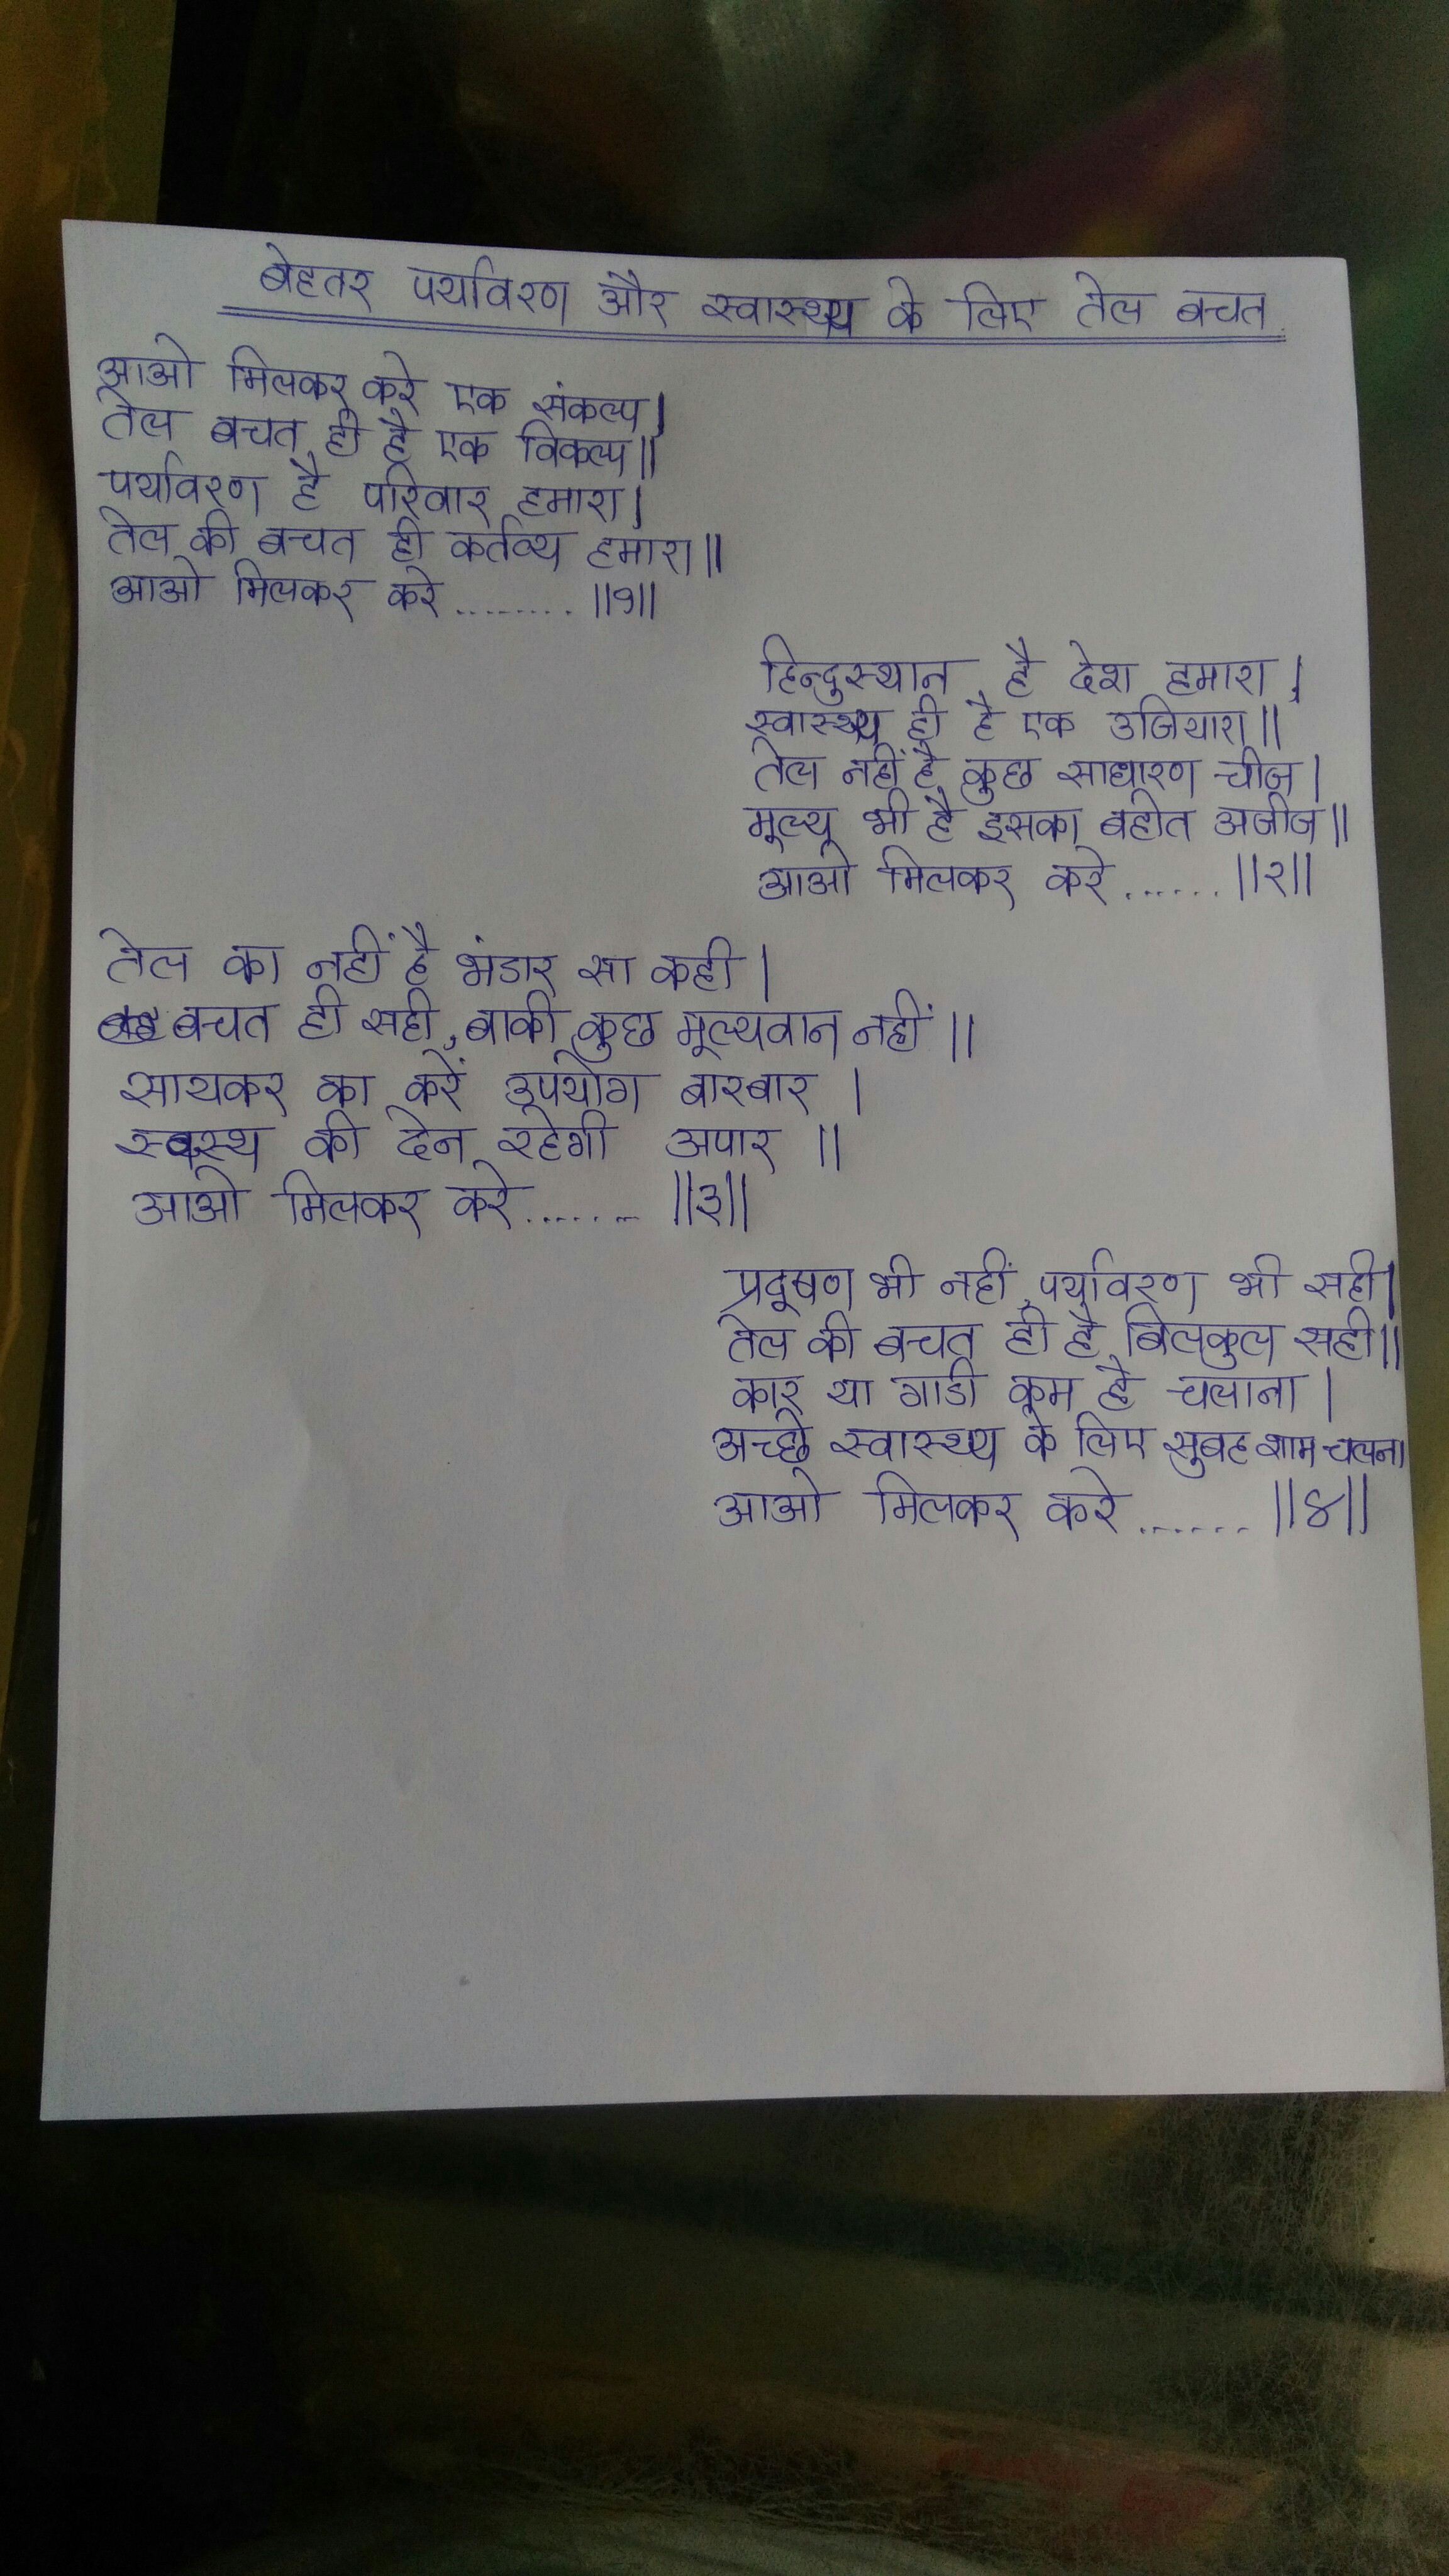 बेहतर पर्यावरण और स्वास्थ्य के लिए तेल बचत
आओ मिलकर करे एक संकल्प |
तेल बचत ही है एक विकल्प ||
पर्यावरण है परिवार हमारा |
तेल की बचत ही कर्तव्य हमारा ||
आओ मिलकर करे ........ ||१||
हिन्दुस्थान है देश हमारा |
स्वास्थ्य ही है एक उजियारा ||
तेल नहीं है कुछ साधारण चीज |
मूल्य भी है इसका बहोत अजीज ||
आओ मिलकर करे ...... ||२||
तेल का नहीं है भंडार सा कही |
बचत ही सही, बाकी कुछ मूल्यवान नहीं ||
सायकर का करें उपयोग बारबार |
स्वस्थ की देन रहेगी अपार ||
आओ मिलकर करे ....... ||३||
प्रदूषण भी नहीं, पर्यावरण भी सही |
तेल की बचत ही है बिलकुल सही ||
कार या गाडी कम है चलाना |
अच्छे स्वास्थ्य के लिए सुबह शाम चलना
आओ मिलकर करे ....... ||४||